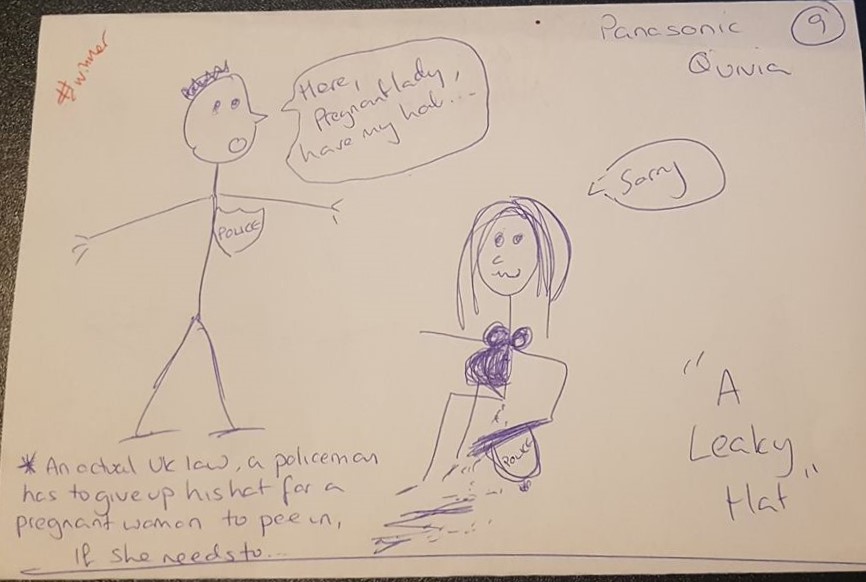 #winner
Panasonic
9
Qunia
Here,
Pregnant lady,
have my hat...
Sorry
POLICE
POLICE
"A
Leaky
Hat"
* An actual UK law, a policeman
has to give up his hat for a
pregnant woman to pee in,
If she needs to...